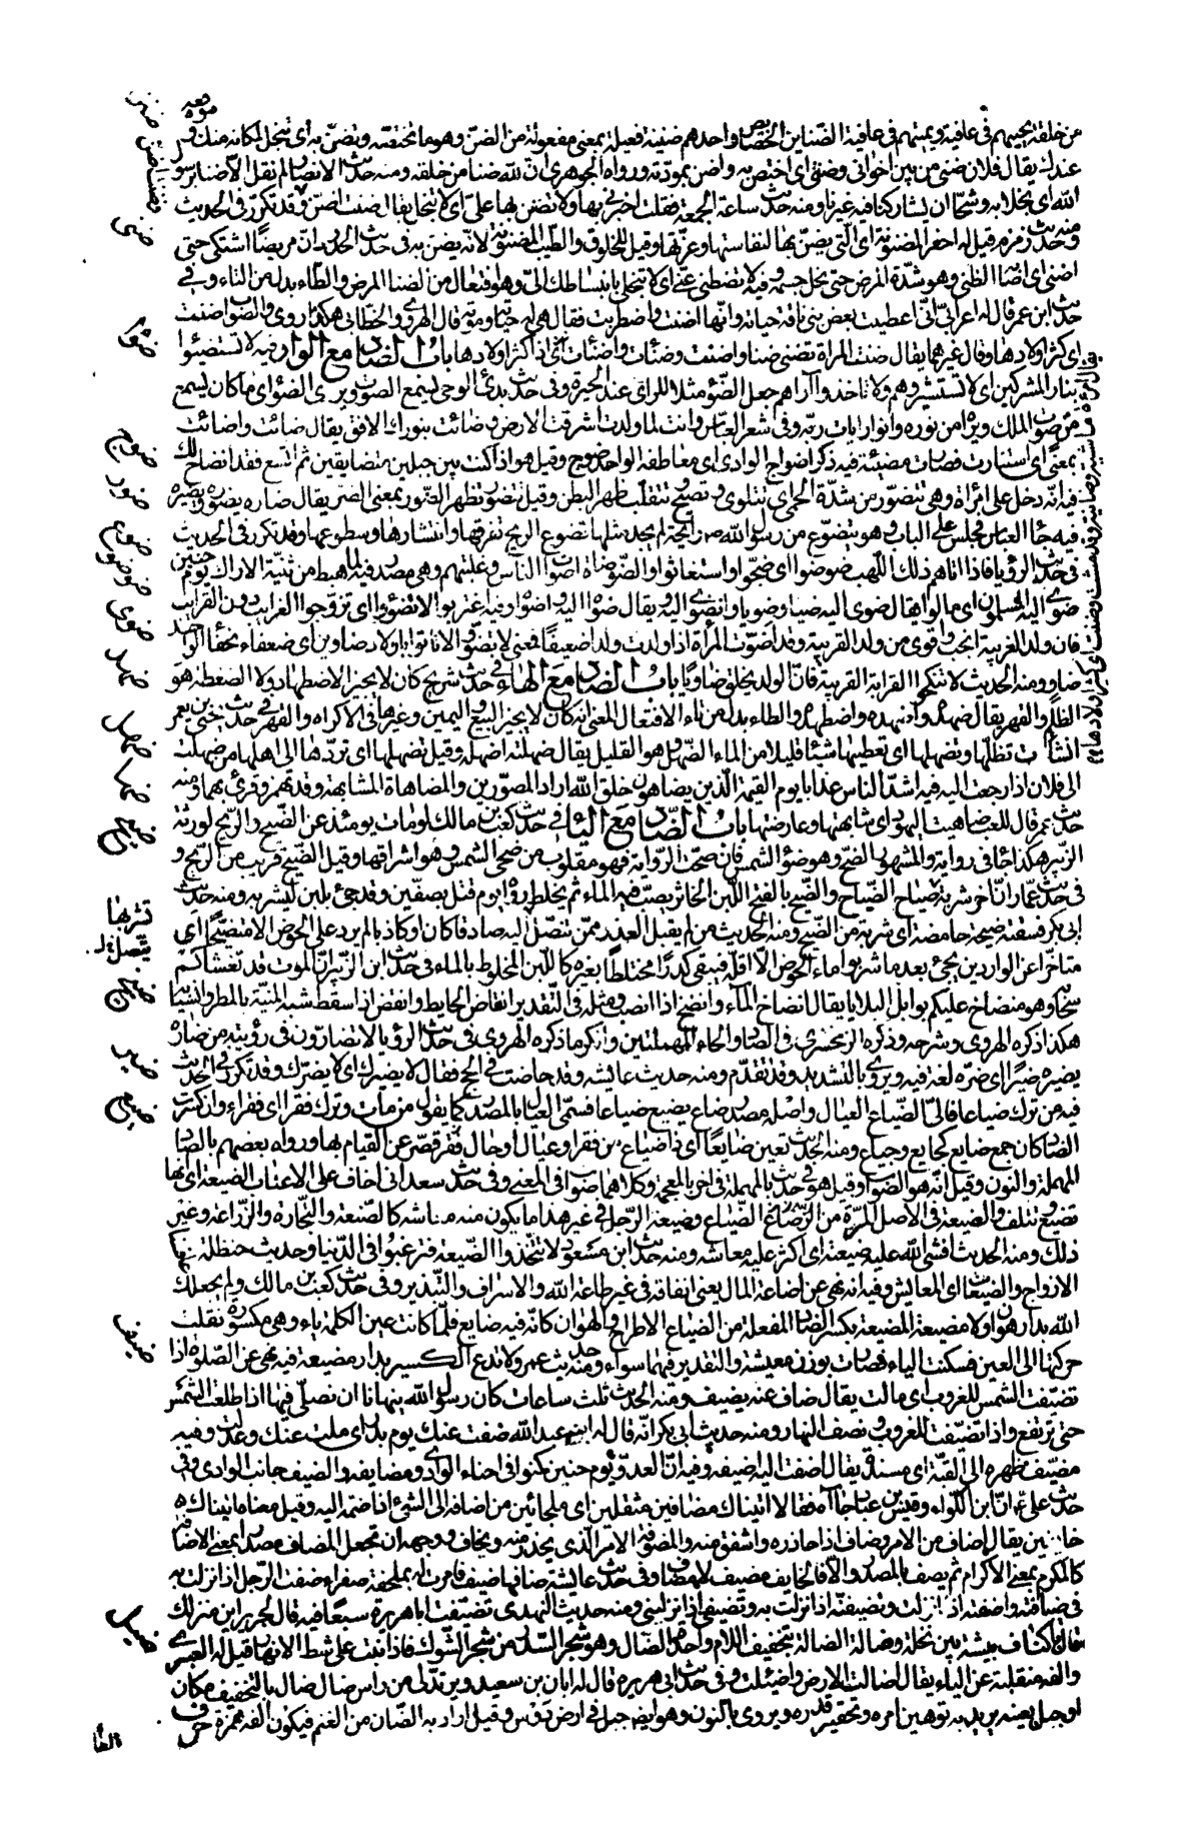 من خلقه يحييهم فى عافية ويميتهم فى عافية الضنائن الخصائص واحدهم ضنينة فعيلة بمعنى مفعولة من الضن وهو ما تختصه وتضن به اى تبخل لمكانه منك وموقعه
عندك يقال فلان ضنى من بين اخوانى وضنتى اى اختص به واضن بمودته ورواه الجوهرى ان لله ضنا من خلقه ومنه حديث الانصار لم نقل الا ضنا برسول
الله اى بخلا به وشحا ان يشاركنا فيه غيرنا ومنه حديث ساعة الجمعة فقلت اخبرنى بها ولا تضنن بها على اى لا تبخل يقال ضننت اضن وقد تكرر فى الحديث
ومنه حديث زمزم قيل له احفر المضنونة اى التى يضن بها لنفاستها وعزتها وقيل للخلوق والطيب المضنونة لانه يضن بهما فى حديث الحدود ان مريضا اشتكى حتى
اضنى اى اصابه الضنى وهو شدة المرض حتى نحل جسمه وفيه لا تضطنى عنى اى لا تبخلى بانبساطك الى وهو افتعال من الضنا المرض والطاء بدل من التاء وفى
حديث ابن عمر قال له اعرابى انى اعطيت بعض بنى ناقة حياته وانها اضنت واضطربت فقال هى له حياته وموته قال الهروى والخطابى هكذا روى والصواب ضنت
اى كثر اولادها وقال غيرهما يقال ضنت المراة تضنى ضنا واضنت وضنات واضنات اى اذا كثر اولادها باب الضاد مع الواو فيه لا تستضيئوا
بنار المشركين اى لا تستشيروهم ولا تاخذوا آراهم جعل الضوء مثلا للراى عند الحيرة وفى حديث بدئ الوحى يسمع الصوت ويرى الضوء اى ما كان يسمع
من صوت الملك ويراه من نوره وانوار ايات ربه وفى شعر العباس وانت لما ولدت اشرقت الارض وضائت بنورك الافق يقال ضائت واضائت
بمعنى اى استنارت وصارت مضيئة فيه ذكر اضواج الوادى اى معاطفه الواحد ضوج وقيل هو اذا كنت بين جبلين متضايقين ثم اتسع فقد انضاج لك
فيه انه دخل على امراة وهى تتضور من شدة الحمى اى تتلوى وتصيح تتقلب ظهرا لبطن وقيل تتضور تظهر الضور بمعنى الضر يقال ضاره يضوره ويضيره
فيه جا العباس فجلس على الباب وهو يتضوع من رسول الله ص رائحة لم يجد مثلها تضوع الريح تفرقها وانتشارها وسطوعها وقد تكرر فى الحديث
فى حديث الرؤيا فاذا اتاهم ذلك اللهب ضوضوا اى ضجوا واستغاثوا والضوضاة اصوات الناس وغلبتهم وهى مصدر فيه لما هبط من ثنية الاراك يوم حنين
ضوى اليه المسلمون اى مالوا يقال ضوى اليه ضيا وضويا وانضوى اليه ويقال ضواه اليه واضواه وفيه اغتربوا لا تضووا اى تزوجوا الغرايب دون القرايب
فان ولد الغريبة انجب واقوى من ولد القريبة وقد اضوت المراة اذا ولدت ولدا ضعيفا فمعنى لا تضووا لا تاتوا باولاد ضاوين اى ضعفاء نحفا الواحد
ضاو ومنه الحديث لا تنكحوا القرابة القريبة فان الولد يخلق ضاويا باب الضاد مع الهاء فى حديث شريح كان لا يجيز الاضطهاد ولا الضغطة هو
الظلم والقهر يقال ضهده واضهده واضطهده والطاء بدل من تاء الافتعال المعنى انه كان لا يجيز البيع واليمين وغيرها فى الاكراه والقهر فى حديث يحيى بن يعمر
انشات تطلها وتضهلها اى تعطيها شيئا قليلا من الماء الضهل وهو القليل يقال ضهلته اضهله وقيل تضهلها اى تردها الى اهلها من ضهلت
الى فلان اذا رجعت اليه فيه اشد الناس عذابا يوم القيمة الذين يضاهون خلق الله اراد المصورين والمضاهاة المشابهة وقد تهمز وقرئ بهما ومنه
حديث عمر قال لكعب ضاهيت اليهود اى شابهتها وعارضتها باب الضاد مع الياء فى حديث كعب بن مالك لو مات يومئذ عن الضيح والريح لورثه
الزبير هكذا جا فى رواية والمشهور الضح وهو ضوء الشمس فان صحت الرواية فهو مقلوب من ضحى الشمس وهو اشراقها وقيل الضيح قريب من الريح و
فى حديث عمار ان آخر شربة تشربها ضياح الضياح والضيح بالفتح اللبن الخاثر يصب فيه الماء ثم يخلط رواه يوم قتل بصفين وقد جئ بلبن ليشربه ومنه حديث
ابى بكر فسقته ضيحة حامضة اى شربة من الضيح ومنه الحديث من لم يقبل العذر ممن تنصل اليه صادقا كان او كاذبا لم يرد على الحوض الا متضيحا اى
متاخرا عن الواردين يجئ بعد ما شربوا ماء الحوض الا اقله فيبقى كدرا مختلطا بغيره كاللبن المخلوط بالماء فى حديث ابن الزبير ان الموت قد تغشاكم
سحابه وهو منضاخ عليكم بوابل البلايا يقال انضاخ الماء وانضخ اذا انصب ومثله فى التقدير انقاض الحايط وانقض اذا سقط شبه المنية بالمطر وانسيابه
هكذا ذكره الهروى وشرحه وذكره الزمخشرى فى الصاد والحاء المهملتين وانكر ما ذكره الهروى فى حديث الرؤيا لا تضارون فى رؤيته من ضاره
يضيره ضيرا اى ضره لغة فيه ويروى بالتشديد وقد تقدم ومنه حديث عايشة وقد حاضت فى الحج فقال لا يضيرك اى لا يضرك وقد تكرر فى الحديث
فيه من ترك ضياعا فالى الضياع العيال واصله مصدر ضاع يضيع ضياعا فسمى العيال بالمصدر كما يقول من مات وترك فقرا اى فقراء وان كسرت
الضاد كان جمع ضايع كجايع وجياع ومنه الحديث تعين ضايعا اى ذا ضياع من فقر او عيال او حال قصر عن القيام بها ورواه بعضهم بالصاد
المهملة والنون وقيل انه هو الصواب وقيل هو فى حديث بالمهملة فى اخر بالمعجمة وكلاهما صواب فى المعنى وفى حديث سعد انى اخاف على الاعناب الضيعة اى انها
تضيع وتتلف والضيعة فى الاصل للمرة من الضياع وضيعة الرجل فى غير هذا ما يكون منه معاشه كالصنعة والتجارة والزراعة وغير
ذلك ومنه الحديث افشى الله عليه ضيعته اى اكثر عليه معاشه ومنه حديث ابن مسعود لا تتخذوا الضيعة فترغبوا فى الدنيا وحديث حنظلة
الازواج والضيعات اى المعايش وفيه انه نهى عن اضاعة المال يعنى انفاقه فى غير طاعة الله والاسراف والتبذير وفى حديث كعب بن مالك ولم يجعلك
الله بدار هوان ولا مضيعة المضيعة بكسر الضاد المفعلة من الضياع الاطراح والهوان كانه فيه ضايع فلما كانت عين الكلمة ياء وهى مكسورة نقلت
حركتها الى العين فسكنت الياء فصارت بوزن معيشة والتقدير فيهما سواء ومنه حديث عمر ولا تدع الكسير بدار مضيعة فيه نهى عن الصلوة اذا
تضيفت الشمس للغروب اى مالت يقال ضاف عنه يضيف ومنه الحديث ثلث ساعات كان رسول الله ينهانا ان نصلى فيها اذا طلعت الشمس
حتى ترتفع واذا تضيفت للغروب ونصف النهار ومنه حديث ابى بكر انه قال له ابنه عبد الله ضفت عنك يوم بدر اى ملت عنك وعدلت وفيه
مضيف ظهره الى القبة اى مسنده يقال اضفت اليه اضيفه وفيه ان العدو يوم حنين كمنوا فى احناء الوادى ومضايفه والضيف جانب الوادى وفى
حديث على ع ان ابن الكواء وقيس بن عباد جاآه فقالا اتيناك مضافين مثقلين اى ملجائين من اضافه الى الشئ اذا ضمه اليه وقيل معناه اتيناك
خائفين يقال اضاف من الامر وضاف اذا حاذره واشفق منه والمضوفة الامر الذى يحذر منه ويخاف ووجهه ان تجعل المضاف مصدرا بمعنى الاضافة
كالمكرم بمعنى الاكرام ثم يصف بالمصدر والا فالخايف مضيف لا مضاف وفى حديث عايشة ضافها ضيف فامرت له بملحفة صفراء ضفت الرجل اذا نزلت به
فى ضيافة واضفته اذا انزلته وتضيفته اذا نزلت به وتضيفنى اذا نزلنى ومنه حديث النهدى تضيفت ابا هريرة سبعا فيه قال لجرير اين منزلك
قال باكناف بيشة بين نخلة وضالة الضالة بتخفيف اللام واحدة الضال وهو شجر السدر من شجر الشوك فاذا نبت على شط الانهار قيل له العبرى
والفه منقلبة عن الياء يقال اضالت الارض واضيلت وفى حديث ابى هريرة قال له ابان بن سعيد وبر تدلى من راس ضال ضال بالتخفيف مكان
او جبل بعينه يريد به توهين امره وتحقير قدره ويروى بالنون وهو ايضا جبل فى ارض دوس وقيل اراد به الضان من الغنم فيكون الفه همزة حرف
ضنى
ضوء
ضوج
ضور
ضوع
ضوضو
ضوى
ضهد
ضهل
ضها
ضيح
تشربها
ضيخ
ضير
ضيع
ضيف
ضيل
الفاء